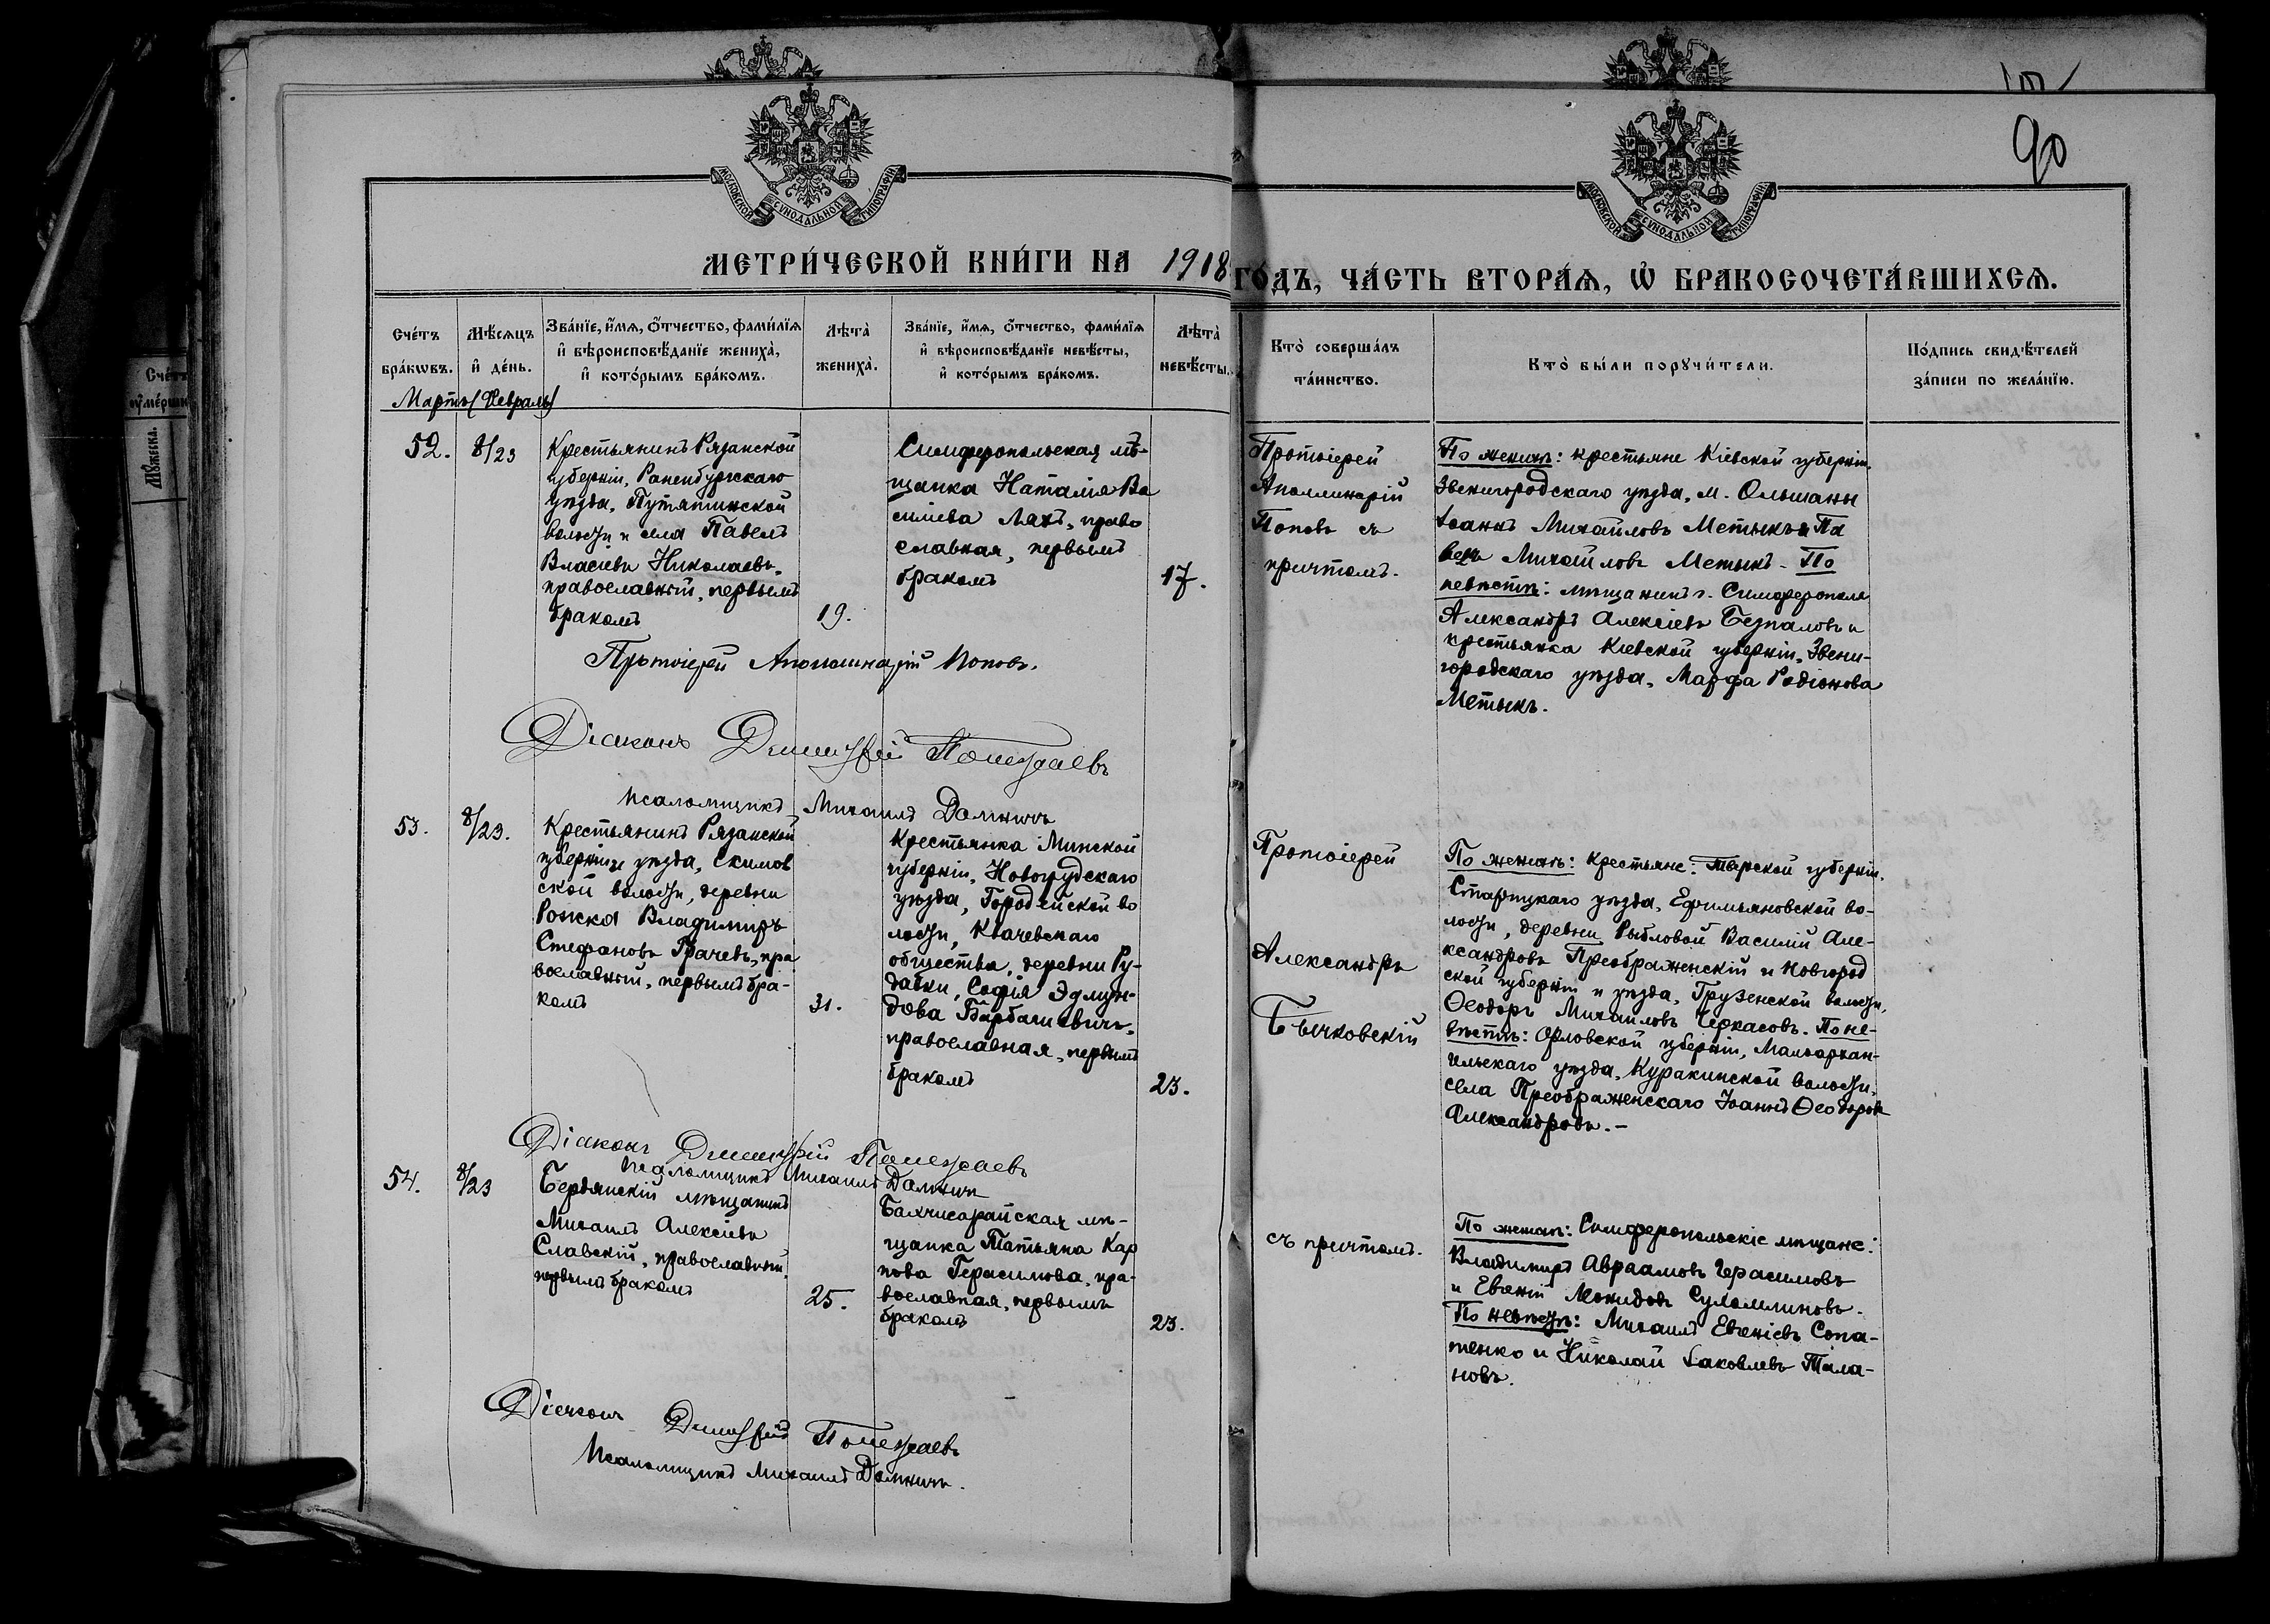 90
МОСКОВСКОЙ СѴНОДАЛЬНОЙ ТИПОГРАФІИ
МОСКОВСКОЙ СѴНОДАЛЬНОЙ ТИПОГРАФІИ
МЕТРИ́ЧЕСКОЙ КНИ́ГИ НА 1918
ГО́ДЪ, ЧА́СТЬ ВТОРА́Ѧ, Ѡ҆ БРАКОСОЧЕТА́ВШИХСѦ.
Сче́тъ
бра́кѡвъ.
Мѣ́сѧцъ
и҆ де́нь.
Зва́нїе, и҆́мѧ, ѻ҆́тчество, фами́лїѧ
и҆ вѣроисповѣ́данїе жениха̀,
и҆ кото́рымъ бра́комъ.
Лѣта̀
жениха̀.
Зва́нїе, и҆́мѧ, ѻ҆́тчество, фами́лїѧ
и҆ вѣроисповѣ́данїе невѣ́сты,
и҆ кото́рымъ бра́комъ.
Лѣта̀
невѣ́сты.
Кто̀ соверша́лъ
та́инство.
Кто̀ бы́ли порꙋчи́тели.
По́дпись свидѣ́телей
за́писи по жела́нїю.
Мартъ (Февраль)
52.
8/23
Крестьянинъ Рязанской
губерніи, Раненбургскаго
уѣзда, Путятинской
волости и села Павелъ
Власіевъ Николаевъ,
православный, первымъ
бракомъ
19.
Симферопольская мѣ-
щанка Наталія Ва
силіева Лахъ, право
славная, первымъ
бракомъ
17.
Протоіерей
Аполлинарій
Поповъ съ
причтомъ.
По женихѣ: крестьяне Кіевской губерніи,
Звенигородскаго уѣзда, м. Ольшаны
Іоаннъ Михайловъ Метыкъ и Па
велъ Михайловъ Метыкъ. По
невѣстѣ: мѣщанинъ г. Симферополя
Александръ Алексіевъ Безпаловъ и
крестьянка Кіевской губерніи, Звени-
городскаго уѣзда, Марфа Родіонова
Метыкъ.
Протоіерей Аполлинарій Поповъ.
Діаконъ Димитрій
Псаломщикъ Михаилъ
53.
8/23.
Крестьянинъ Рязанской
губерніи и уѣзда,
ской волости, деревни
Рожка Владимиръ
Стефановъ Грачевъ, пра
вославный, первымъ бра-
комъ
31.
Крестьянка Минской
губерніи, Новогрудскаго
уѣзда, Городейской во
лости, Квачевскаго
общества, деревни Ру-
давки, Софія Эдмун-
дова
православная, первымъ
бракомъ
23.
Протоіерей
Александръ
Бычковскій
съ причтомъ.
По женихѣ: крестьяне: Тверской губерніи,
Старицкаго уѣзда, Ефимьяновской во-
лости, деревни Рыбловой Василій Але-
ксандровъ Преображенскій и Новгород
ской губерніи и уѣзда, Грузенской волости,
Ѳеодоръ Михаиловъ Черкасовъ. По не-
вѣстѣ: Орловской губерніи, Малоархан-
гельскаго уѣзда, Куракинской волости,
села Преображенскаго Іоаннъ Ѳеодоровъ
Александровъ.-
Діаконъ Димитрій
Псаломщикъ Михаилъ
54.
8/23
Бердянскій мѣщанинъ
Михаилъ Алексіевъ
Славскій, православный,
первымъ бракомъ
25.
Бахчисарайская мѣ-
щанка Татьяна Кар
пова Герасимова, пра-
вославная, первымъ
бракомъ
23.
По женихѣ: Симферопольскіе мѣщане:
Владимиръ Авраамовъ Герасимовъ
и Евѳеній Леонидовъ
По невѣстѣ: Михаилъ Евѳеніевъ Сопа-
тенко и Николай Іаковлевъ Тала-
новъ.
Діаконъ Димитрій
Псаломщикъ Михаилъ
Сче́тъ
Мꙋ́жеска.